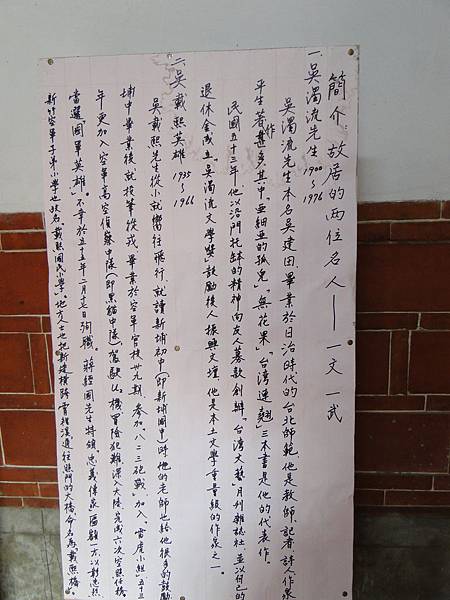 簡介 故居的兩位名人——一文一武
一、吳濁流先生 1900～1976
吳濁流先生本名吳建田,畢業於日治時代的台北師範,他是教師、記者、詩人作家
平生著作甚多其中「亞細亞的孤兒」「無花果」「台灣連翹」三本書是他的代表作。
民國五十三年,他以沿門托缽的精神向友人募款創辦「台灣文藝」月刊雜誌社,並以自己的
退休金成立「吳濁流文學獎」鼓勵後人振興文壇,他是本土文學重量級的作家之一。
二、吳戴熙英雄 1935～1966
吳戴熙先生從小就嚮往飛行,就讀新埔初中(即新埔國中)時他的老師也給他很多的鼓勵
埔中畢業後就投筆從戎,畢業於空軍官校卅九期,參加「八二三砲戰」加入「雷虎小組」五十三
年更加入空軍高空偵察中隊(即黑貓中隊)駕駛U2機冒險犯難深入大陸,完成六次空照任務
當選「國軍英雄」。不幸於五十五年二月十七日殉職。蔣經國先生特頒「忠義傳家」匾額一方以對忠烈
新竹空軍子弟小學也改名「載熙國民小學」地方人士也把新建橫跨霄裡溪通往照門的大橋命名為載熙橋。